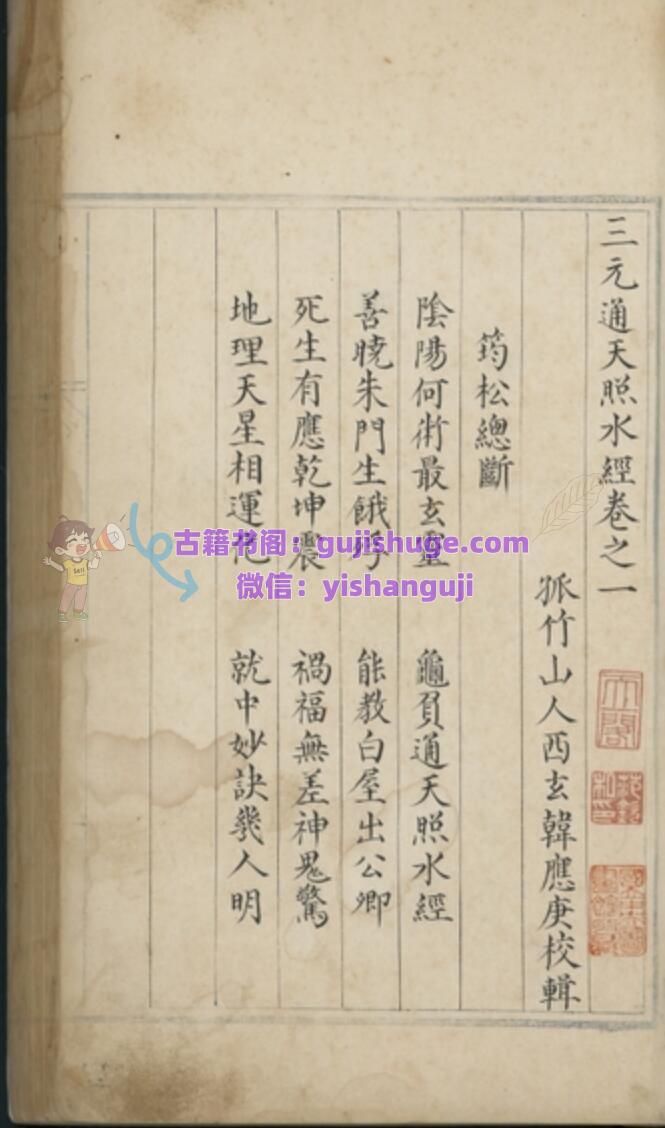 三元通天照水經卷之一
孤竹山人西玄韓應庚校輯
筠松總斷
陰陽何術最玄靈 龜負通天照水經
善曉朱門生餓殍 能教白屋出公卿
死生有應乾坤震 禍福無差神鬼驚
地理天星相運 就中妙訣幾人明
古籍书阁:gujishuge.com
微信:yishanguji
Sell